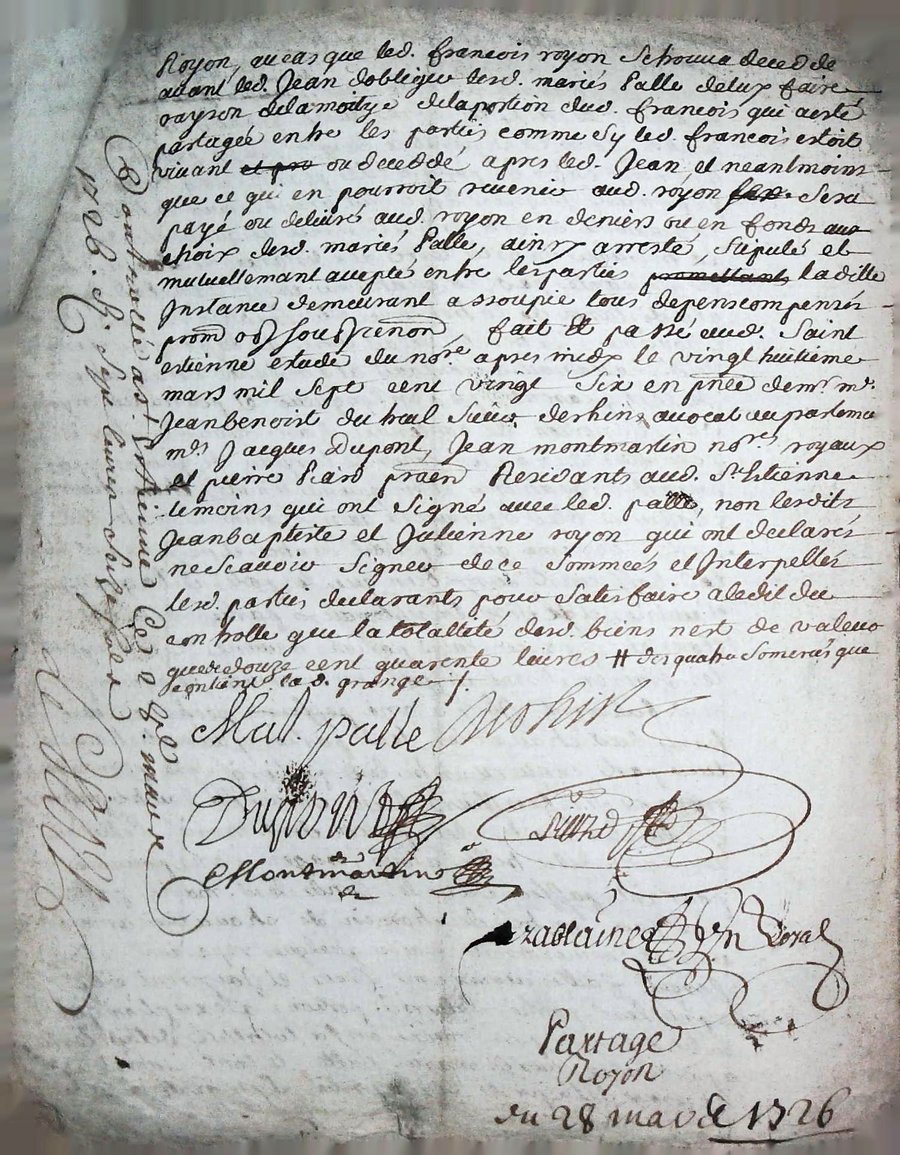 Royon, au cas que led. francois royon se trouva decedde
avant led. Jean doblige lesd. mariés Palle de luy faire
rayson de la moitye de la portion dud. francois qui a esté
partagée entre les parties comme sy led. francois estoit
vivant et pro ou deceddé apres led. Jean, et neantmoins
que ce qui en pourroit revenir aud. royon sera
payé ou delivré aud. royon en deniers ou en fonds au
choix desd. mariés Palle, ainsy arresté, stipulé et
mutuellemant accepté entre les parties promettant, la ditte
Instance demeurant assoupie tous depens compensés
prom obl soub renon, fait et passé aud. Saint
estienne etude du nore apres midy le vingt huitieme
mars mil sept cent vingt six en pnce de mr me
Jean benoist du sieur avocat au parleme
mes Jacques Dupont, Jean montmartin nores royaux
et pierre praen Residants aud. St Etienne
temoins qui ont signé avec led. palle, non lesdits
Jean baptiste et Julienne royon qui ont declarés
ne scavoir signer de ce sommés et Interpellés
lesd. parties declarants pour satisfaire a ledit du
controlle que la totallité desd. biens n'est de valeur
que de douze cent quarente livres # des quatre que
contient la d. grange /.
Mat. palle
Dupont
Montmartin
Royal
Partage
Royon
du 28 mars 1726
Controllé a St Etienne ce 2 mil
1726. R. sept livres